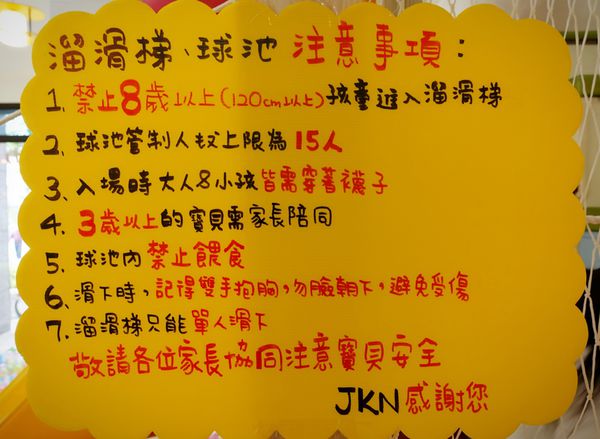 溜滑梯、球池 注意事項：
1. 禁止8歲以上(120cm以上)孩童進入溜滑梯
2. 球池管制人數上限為15人
3. 入場時大人&小孩皆需穿著襪子
4. 3歲以上的寶貝需家長陪同
5. 球池內禁止餵食
6. 滑下時，記得雙手抱胸，勿臉朝下，避免受傷
7. 溜滑梯只能單人滑下
敬請各位家長協同注意寶貝安全
JKN感謝您